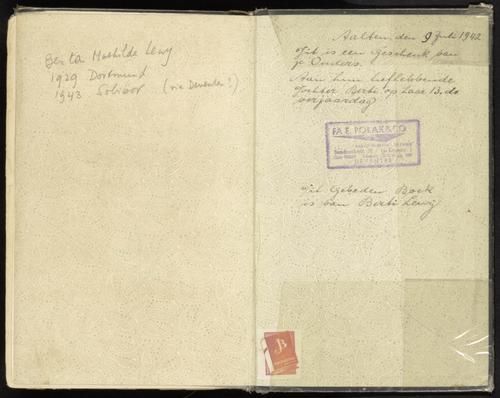 Berta Mathilde Lewy
1929 Dortmund
1943 Sobibor (via Deventer?)
Aalten, den 9 Juli 1942
Dit is een Geschenk van
je Ouders.
Aan hun liefhebbende
Dochter Berti op haar 13.de
verjaardag
FA. E. POLAK & CO
DEVENTER
Dit Gebeden Boek
is van Berti Lewij
JB